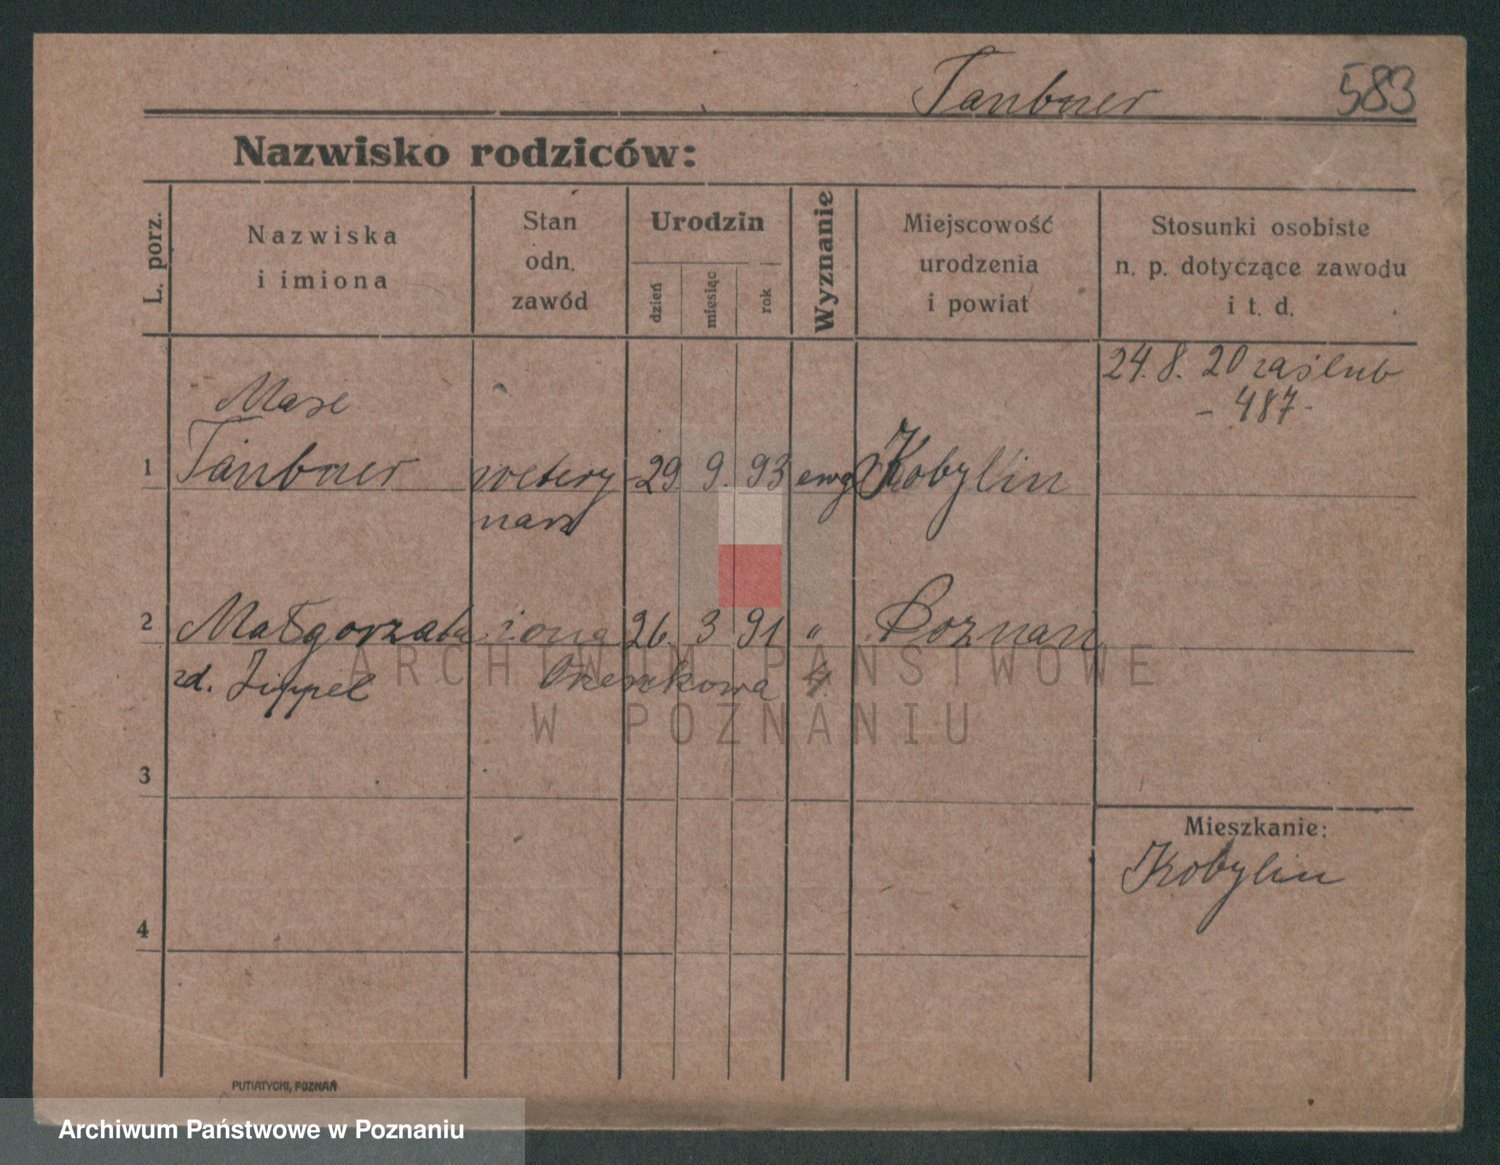 Taubner 583
Nazwisko rodziców:
L. porz.
Nazwiska
i imiona
Stan
odn.
zawód
Urodzin
dzień
miesiąc
rok
Wyznanie
Miejscowość
urodzenia
i powiat
Stosunki osobiste
n. p. dotyczące zawodu
i t. d.
24. 8. 20 zaślub
- 487 -
Max
1 Taubner wetery 29 9. 93 ewg Kobylin
narz
2 Małgorzata żona 26. 3 91 " Poznan
zd. Zippel Orzeszkowa
ARCHIWUM PAŃSTWOWE
W POZNANIU
3
Mieszkanie:
Kobylin
4
PUTIATYCKI, POZNAŃ
Archiwum Państwowe w Poznaniu